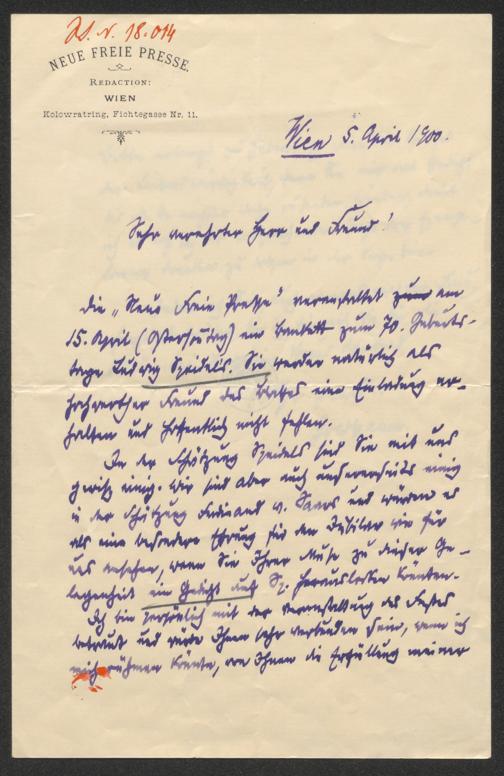 I. N. 18.014
NEUE FREIE PRESSE.
REDACTION:
WIEN
Kolowratring, Fichtegasse Nr. 11.
Wien 5. April 1900.
Sehr verehrter Herr und Freund!
Die „Neue Freie Presse" veranstaltet zum am
15. April (Ostersonntag) ein Bankett zum 70. Geburts-
tage Ludwig Speidels. Sie werden natürlich als
hochwerther Freund des Blattes eine Einladung er-
halten und hoffentlich nicht fehlen.
In der Schätzung Speidels sind Sie mit uns
gewiß einig. Wir sind aber auch unsererseits einig
in der Schätzung Ferdinand v. Saars und würden es
als eine besondere Ehrung für den Jubilar wie für
uns ansehen, wenn Sie Ihrer Muse zu dieser Ge-
legenheit ein Gedicht auf Sp. herauslocken könnten.
Ich bin persönlich mit der Veranstaltung des Festes
betraut und würde Ihnen sehr verbunden sein, wenn ich
mich rühmen könnte, von Ihnen die Erfüllung meiner